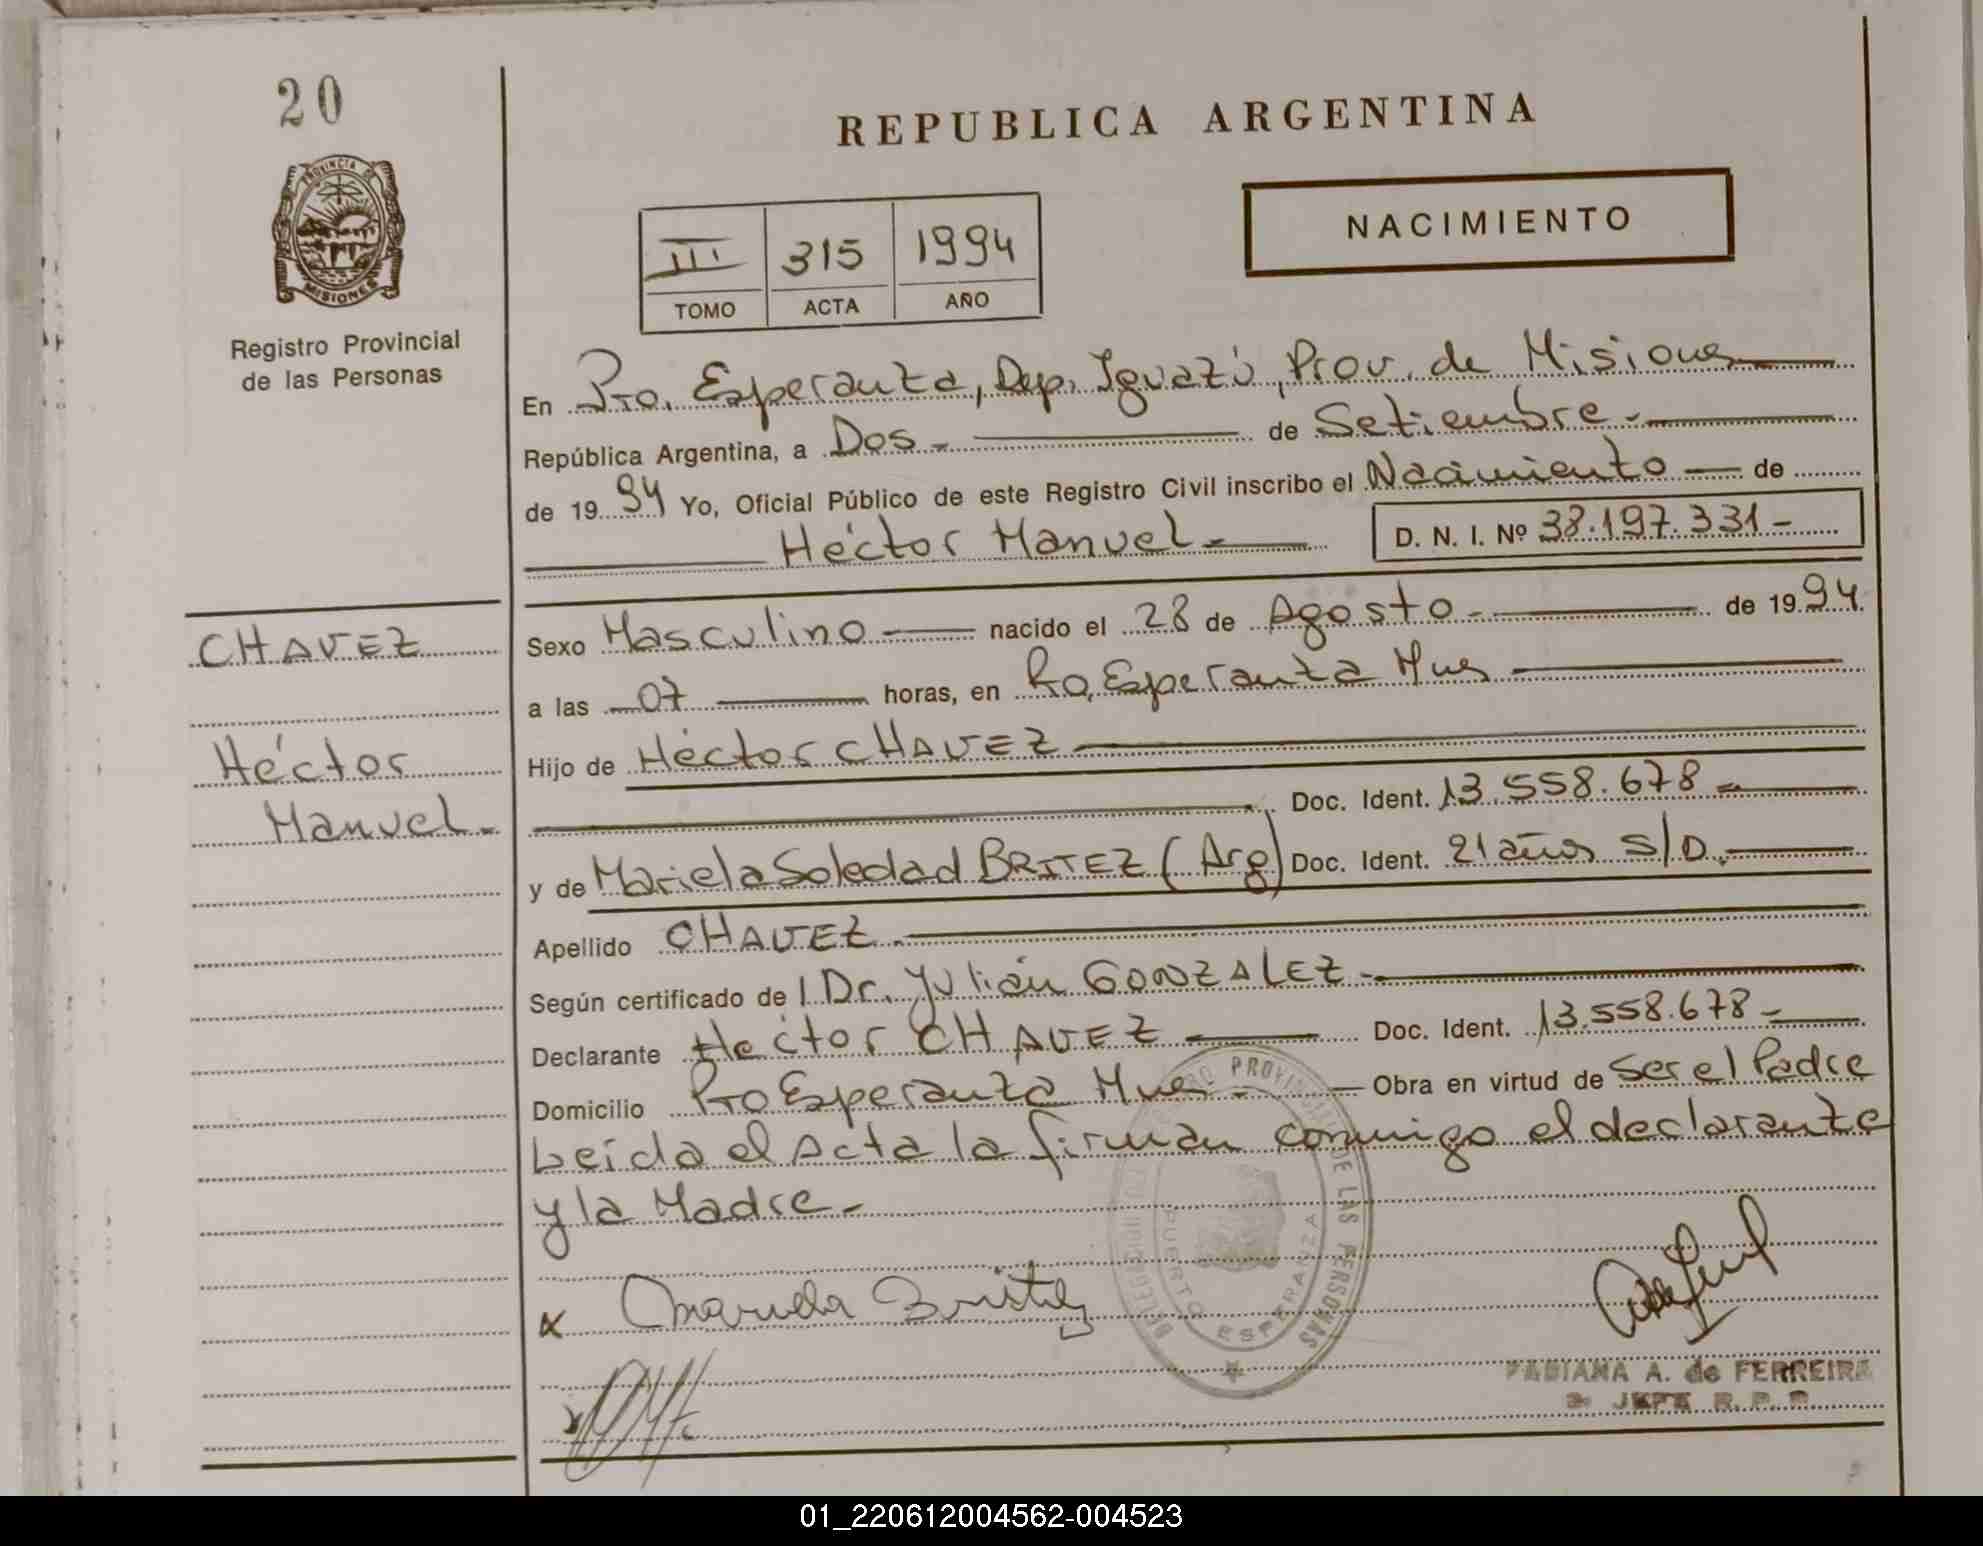 20
PROVINCIA DE
MISIONES
Registro Provincial
de las Personas
REPUBLICA ARGENTINA
NACIMIENTO
III 315 1994
TOMO ACTA AÑO
En Pto. Esperanza, Dep. Iguazú, Prov. de Misiones
República Argentina, a Dos.- de Setiembre.-
de 1994 Yo, Oficial Público de este Registro Civil inscribo el Nacimiento de
Héctor Manuel.- D. N. I. Nº 38.197.331-
CHAVEZ
Héctor
Manuel.-
Sexo Masculino nacido el 28 de Agosto.- de 1994
a las 07 horas, en Pto. Esperanza Mnes
Hijo de Héctor CHAVEZ
Doc. Ident. 13.558.678-
y de Mariela Soledad BRITEZ (Arg) Doc. Ident. 21 años S/D.
Apellido CHAVEZ.
Según certificado de l Dr. Julián GONZALEZ.-
Declarante Hector CHAVEZ Doc. Ident. 13.558.678-
Domicilio Pto Esperanza Mnes.- Obra en virtud de Ser el Padre
Leída el Acta la firman conmigo el declarante
y la Madre.-
REGISTRO PROVINCIAL DE LAS PERSONAS
PUERTO ESPERANZA
x Mariela Britez
FABIANA A. de FERREIRA
JEFE R. P. P.
01_220612004562-004523